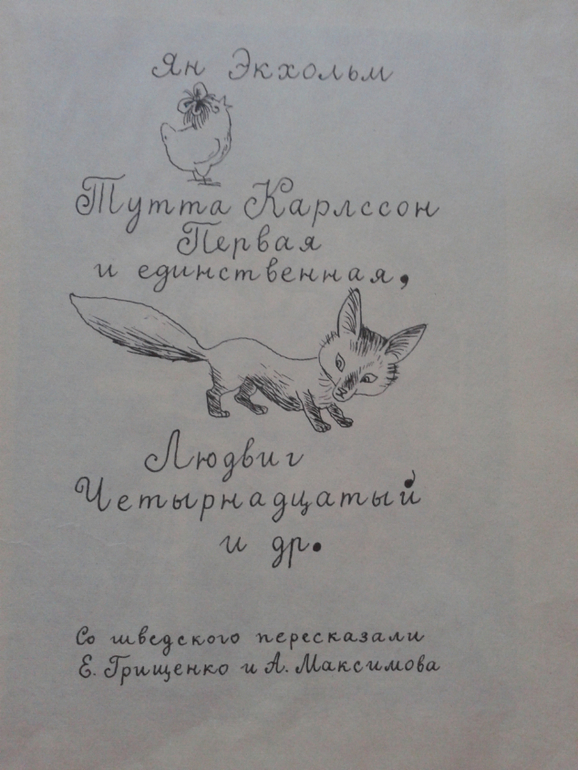 Ян Экхольм
Тутта Карлссон
Первая
и единственная,
Людвиг
Четырнадцатый
и др.
Со шведского пересказали
Е. Грищенко и А. Максимова